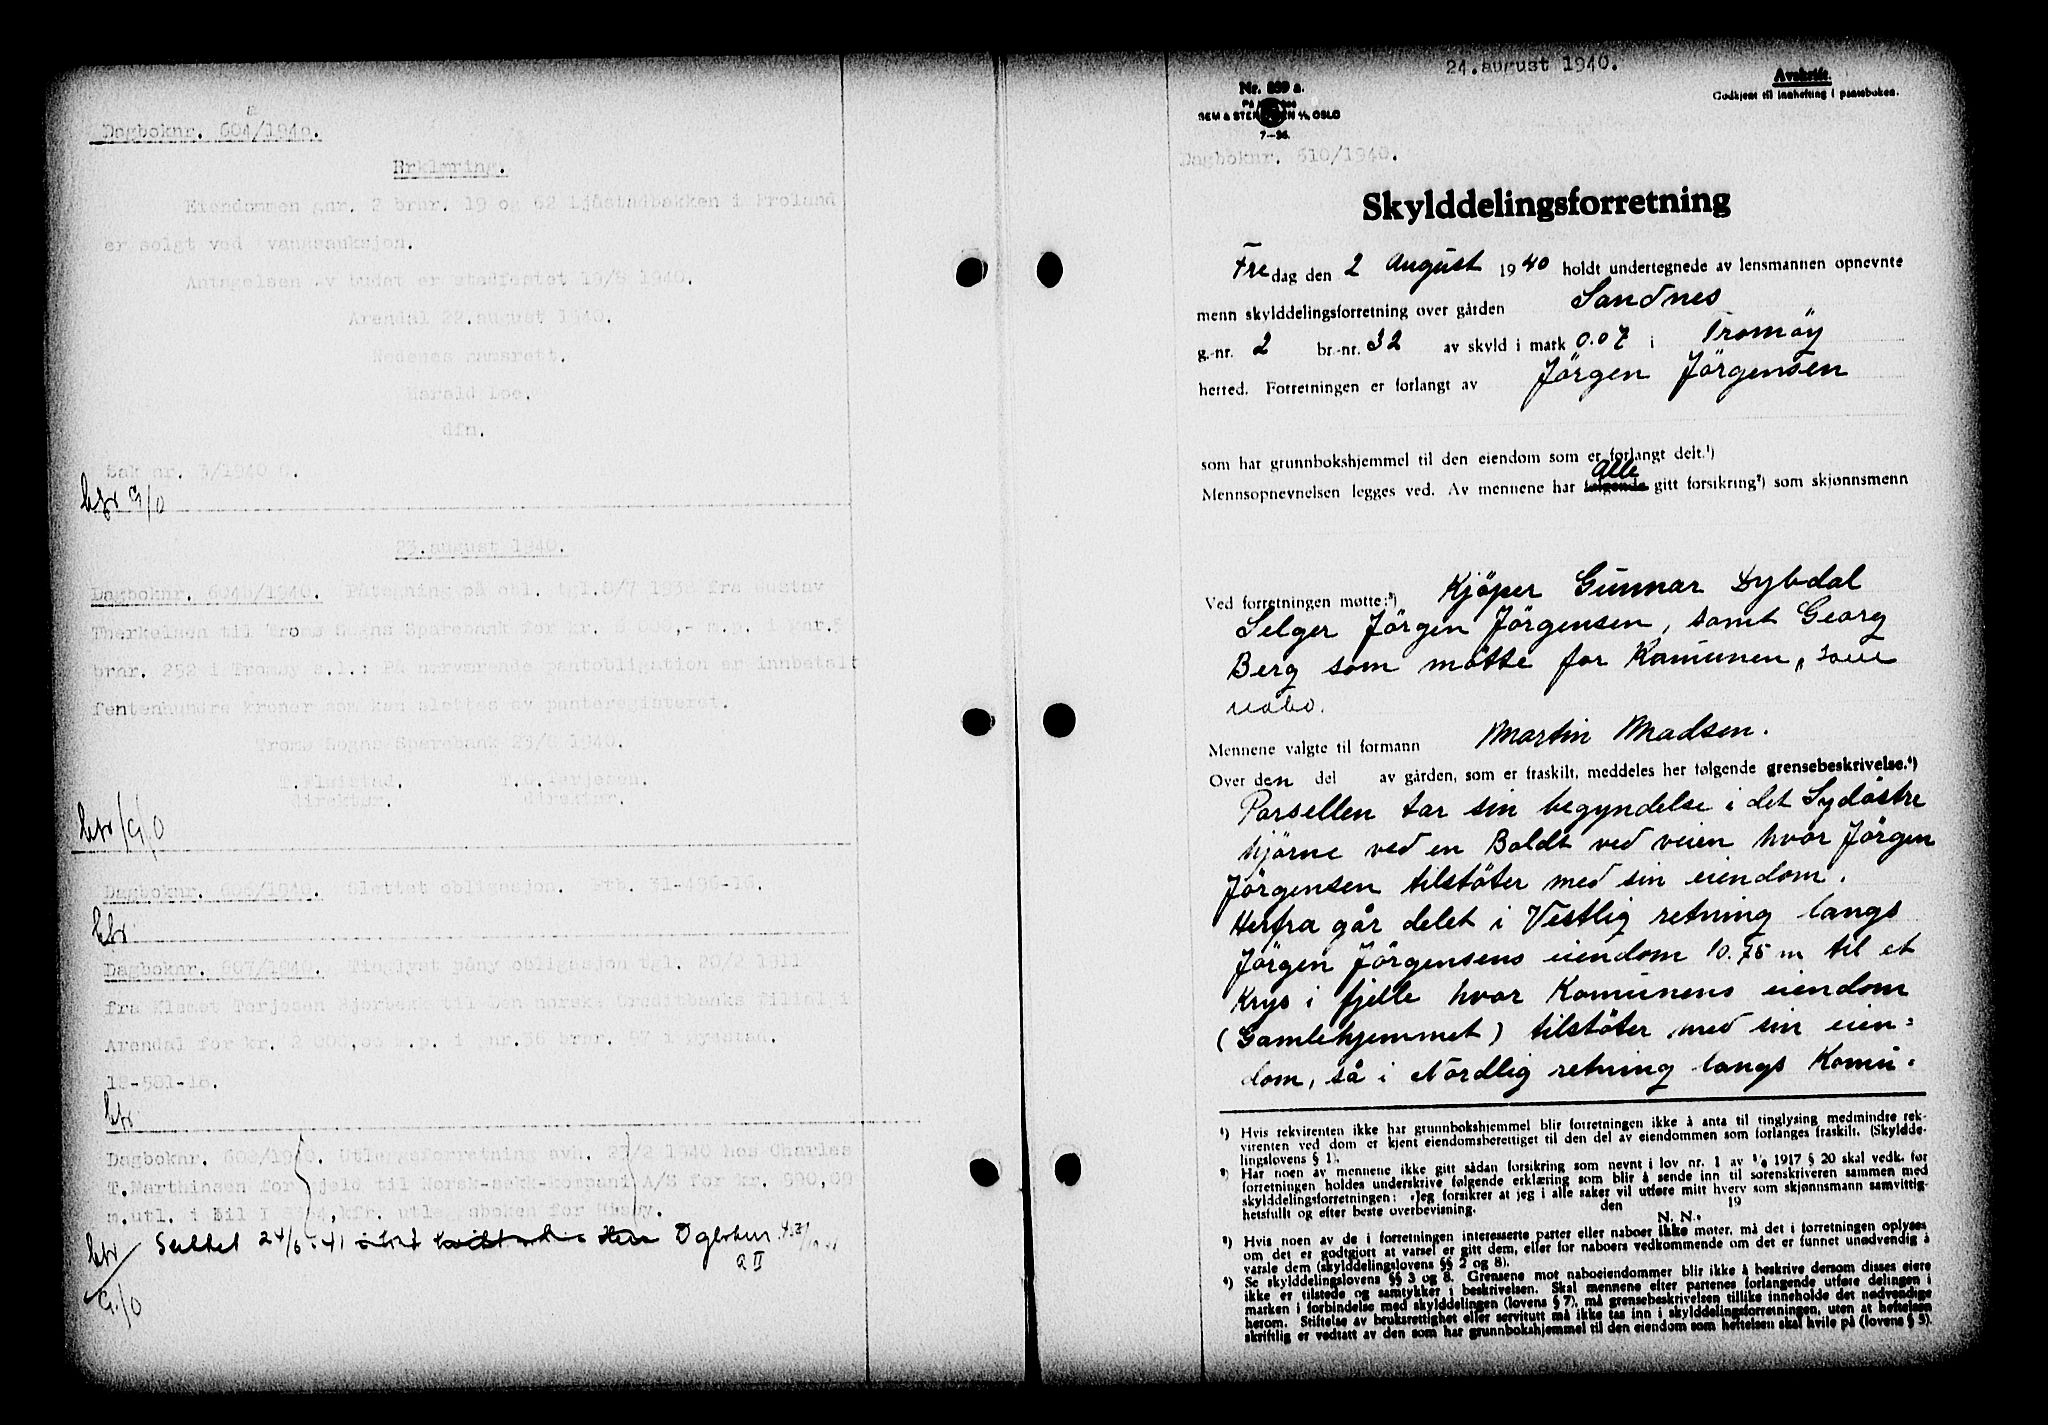 Dagboknr. 604a/1940.
Erklæring.
Eiendommen gnr. 2 brnr. 19 og 62 Ljåstadbakken i Froland
er solgt ved tvangsauksjon.
Antagelsen av budet er stadfestet 19/8 1940.
Arendal 22.august 1940.
Nedenes namsrett.
Harald Loe.
dfm.
Sak nr. 3/1940 C.
23.august 1940.
Dagboknr. 604b/1940. Påtegning på obl. tgl.8/7 1938 fra Gustav
Therkelsen til Tromø Sogns Sparebank for kr. 6 000,- m.p. i gnr.
brnr. 252 i Tromøy s.l.: På nærværende pantobligation er innbetalt
femtenhundre kroner som kan slettes av panteregisteret.
Tromø Sogns Sparebank 23/8 1940.
T. T.G.Terjesen.
direktør. direktør.
Dagboknr. 606/1940. Slettet obligasjon. Ptb. 31-496-16.
Dagboknr. 607/1940. Tinglyst påny obligasjon tgl. 20/2 1911
fra Klemet Terjesen Bjorbekk til Den norske Creditbanks filial i
Arendal for kr. 2 000,00 m.p. i gnr.36 brnr. 97 i Øyestad.
18-501-18.
Dagboknr. 609/1940. Utlegsforretning avh. 27/2 1940 hos Charles
T.Marthinsen for gjeld til Norsk-sekk-kompani A/S for kr. 990,09
m.utl. i bil I, kfr. utlegsboken for
24.august 1940.
Nr. 859 a.
SEM & STENERSEN A/S OSLO
7—36.
Avskrift.
Godkjent til innhefting i panteboken.
Dagboknr. 610/1940.
Skylddelingsforretning
Fredag den 2 August 1940 holdt undertegnede av lensmannen opnevnte
menn skylddelingsforretning over gården Sandnes
g.-nr. 2 br.-nr. 32 av skyld i mark 0.07 i Tromøy
herred. Forretningen er forlangt av Jörgen Jörgensen
som har grunnbokshjemmel til den eiendom som er forlangt delt.¹)
Mennsopnevnelsen legges ved. Av mennene har følgende Alle gitt forsikring²) som skjønnsmenn
Ved forretningen møtte:³) Kjöper Gunnar Dybdal
Selger Jörgen Jörgensen, samt Georg
Berg som mötte for Komunen, som
nabo.
Mennene valgte til formann Martin Madsen.
Over den del av gården, som er fraskilt, meddeles her følgende grensebeskrivelse.⁴)
Parsellen tar sin begyndelse i det Sydöstre
hjörne ved en Boldt ved veien hvor Jörgen
Jörgensen tilstöter med sin eiendom.
Herfra går delet i Vestlig retning langs
Jörgen Jörgensens eiendom 10.75 m til et
Krys i fjelle hvor Komunens eiendom
(Gamlehjemmet) tilstöter med sin eien=
dom, så i Nordlig retning langs Komu=
¹) Hvis rekvirenten ikke har grunnbokshjemmel blir forretningen ikke å anta til tinglysing medmindre rek-
virenten ved dom er kjent eiendomsberettiget til den del av eiendommen som forlanges fraskilt. (Skyldde-
lingslovens § 1).
²) Har noen av mennene ikke gitt sådan forsikring som nevnt i lov nr. 1 av 1/6 1917 § 20 skal vedk. før
forretningen holdes underskrive følgende erklæring som blir å sende inn til sorenskriveren sammen med
skylddelingsforretningen: „Jeg forsikrer at jeg i alle saker vil utføre mitt hverv som skjønnsmann samvittig-
hetsfullt og efter beste overbevisning. den 19
N. N.”
³) Hvis noen av de i forretningen interesserte parter eller naboer ikke møter, må det i forretningen oplyses
om det er godtgjort at varsel er gitt dem, eller for naboers vedkommende om det er funnet unødvendig å
varsle dem (skylddelingslovens §§ 2 og 8).
⁴) Se skylddelingslovens §§ 3 og 8. Grensene mot naboeiendommer blir ikke å beskrive dersom disses eiere
ikke er tilstede og samtykker i beskrivelsen. Skal mennene efter partenes forlangende utføre delingen i
marken i forbindelse med skylddelingen (lovens § 7), må grensebeskrivelsen tillike inneholde det nødvendige
herom. Stiftelse av bruksrettighet eller servitutt må ikke tas inn i skylddelingsforretningen, uten at heftelsen
skriftlig er vedtatt av den som har grunnbokshjemmel til den eiendom som heftelsen skal hvile på (lovens § 5).